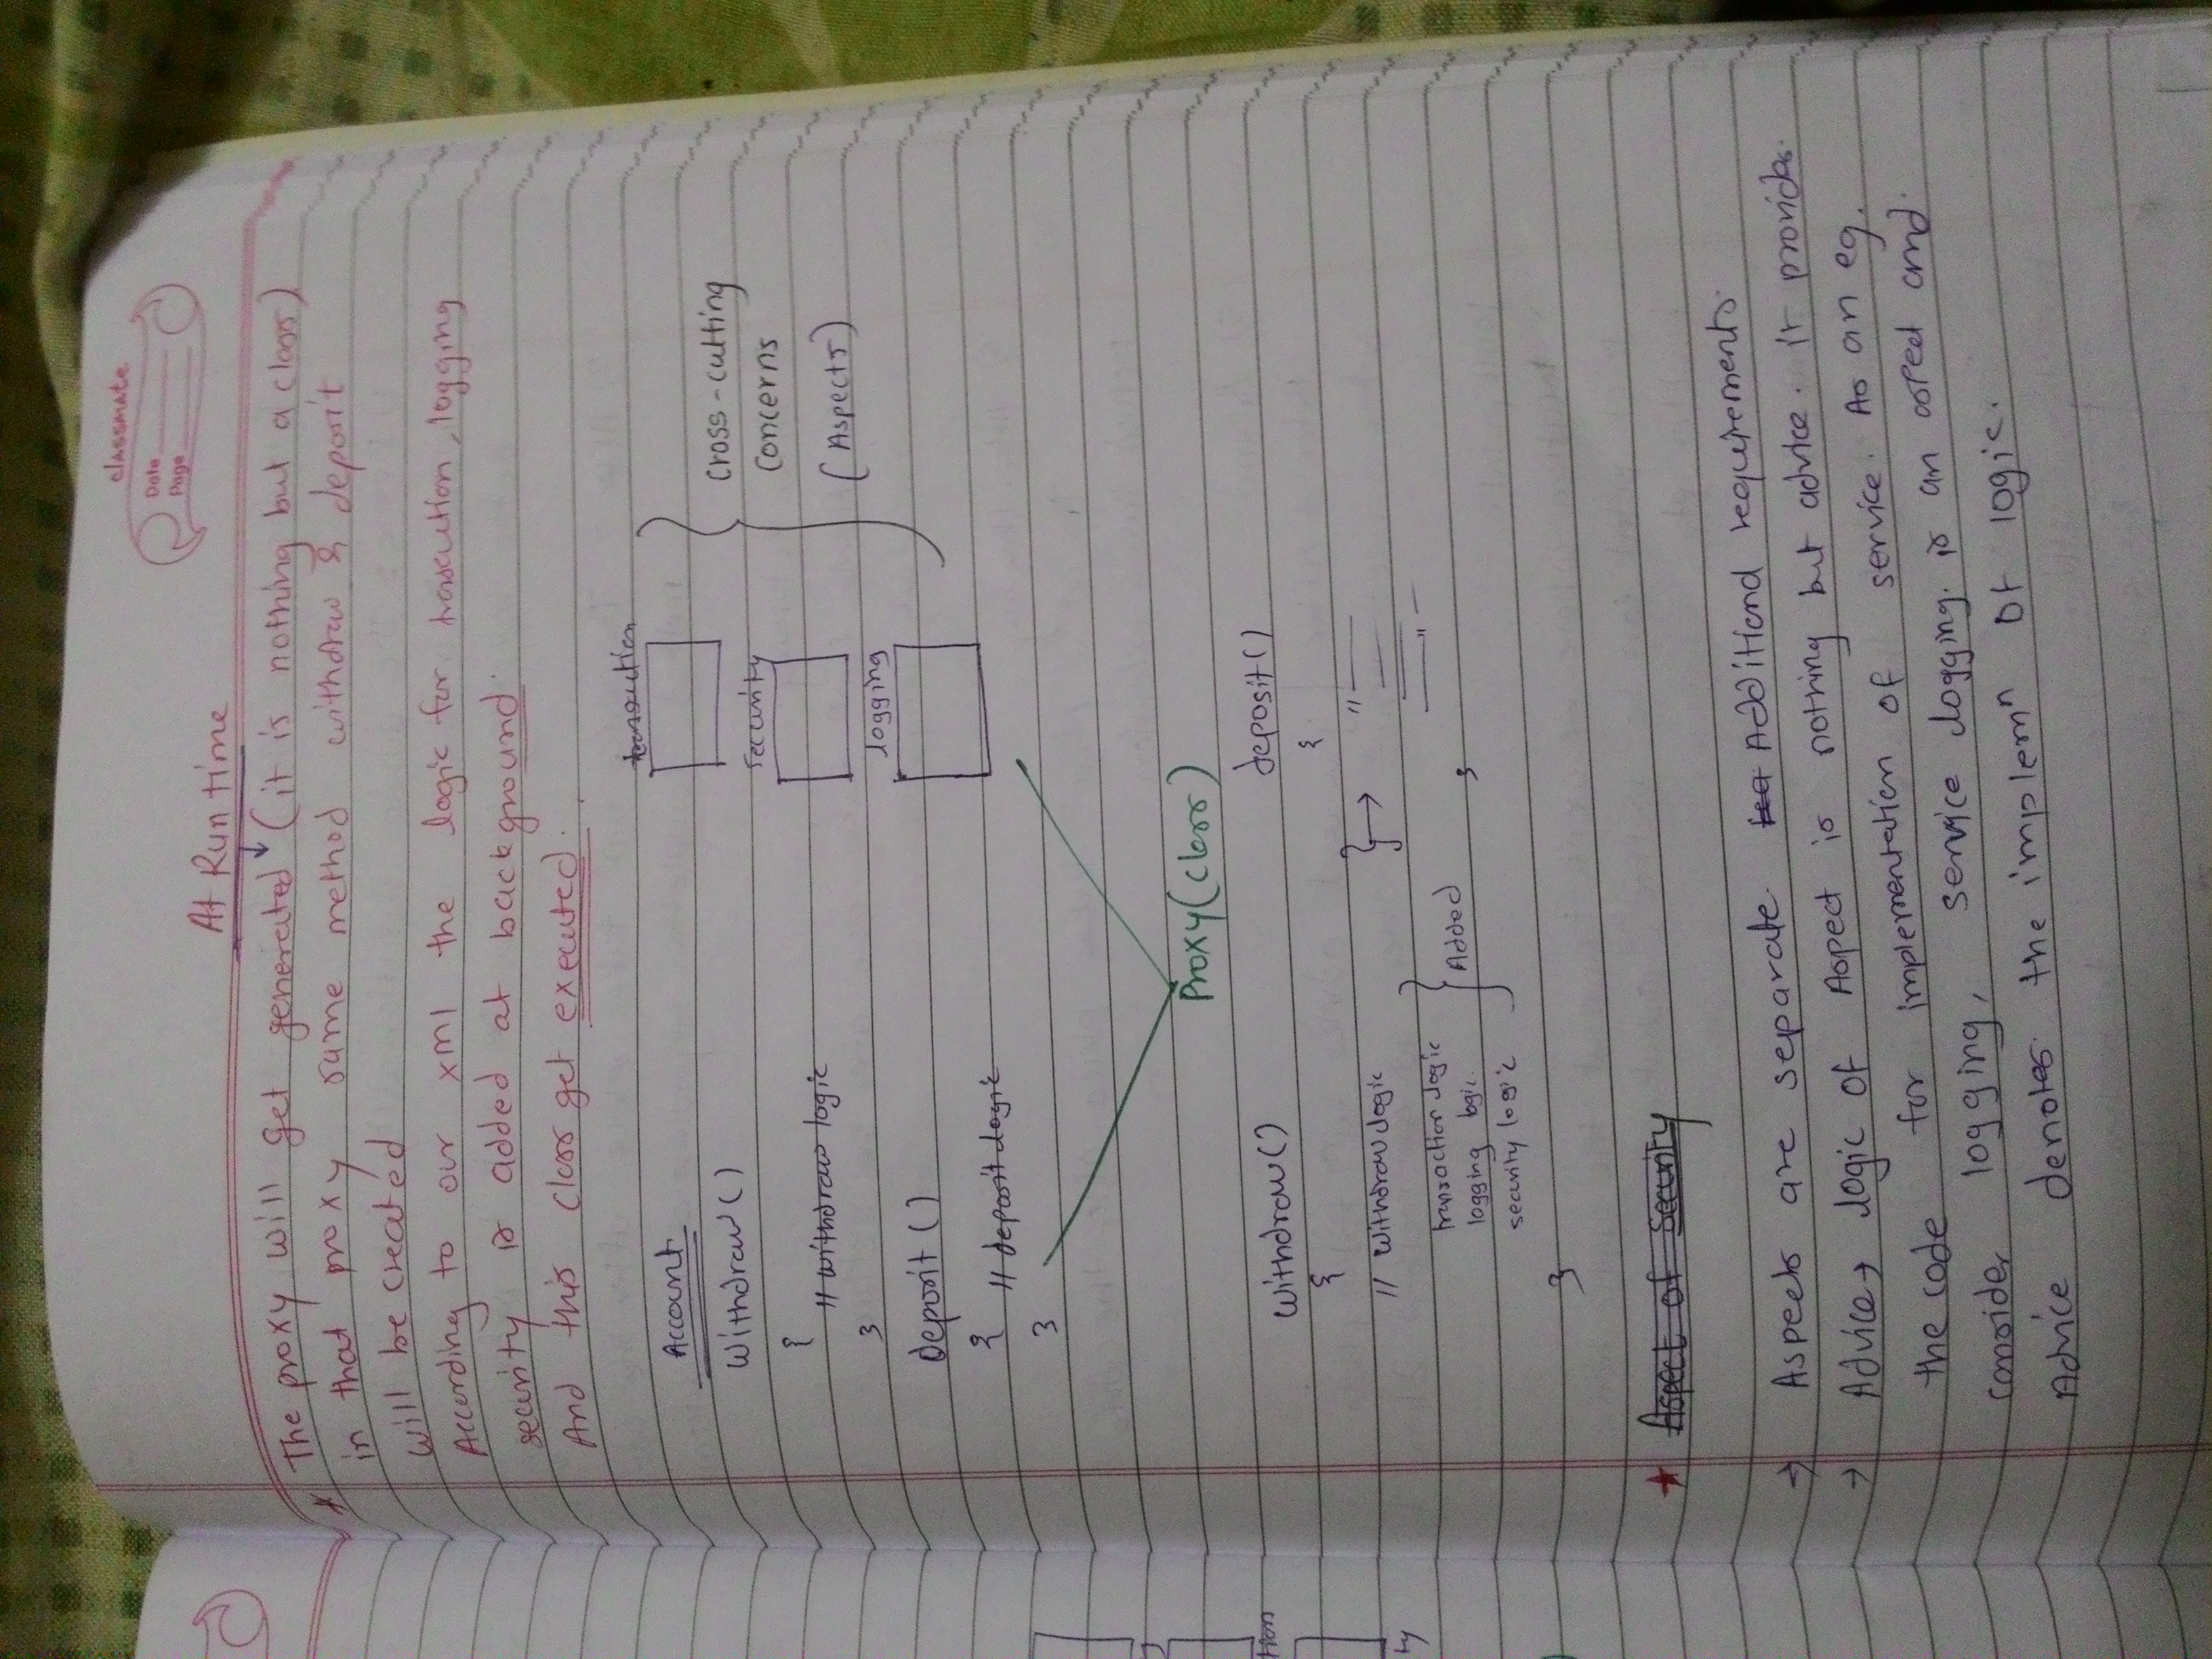 classmate
Date
Page
At Run time
The proxy will get generated (it is nothing but a class)
in that proxy same method withdraw & deposit
will be created
According to our xml the logic for transaction, logging
security is added at background.
And this class get executed.
transaction
Account
Withdraw ()
Cross-cutting
security
Concerns
{
// withdraw logic
(Aspects)
}
logging
deposit ()
{ // deposit logic
}
Proxy (class)
Withdraw () deposit ()
{ {
// Withdraw logic
transaction logic
logging logic.
Added
security logic
} }
Aspect of Security
→ Aspects are separate. Additional requirements.
→ Advice → logic of Aspect is nothing but advice. it provides.
the code for implementation of service. As an eg.
consider logging, service logging. is an aspect and.
Advice denotes the implemⁿ of logic.
tion
ty